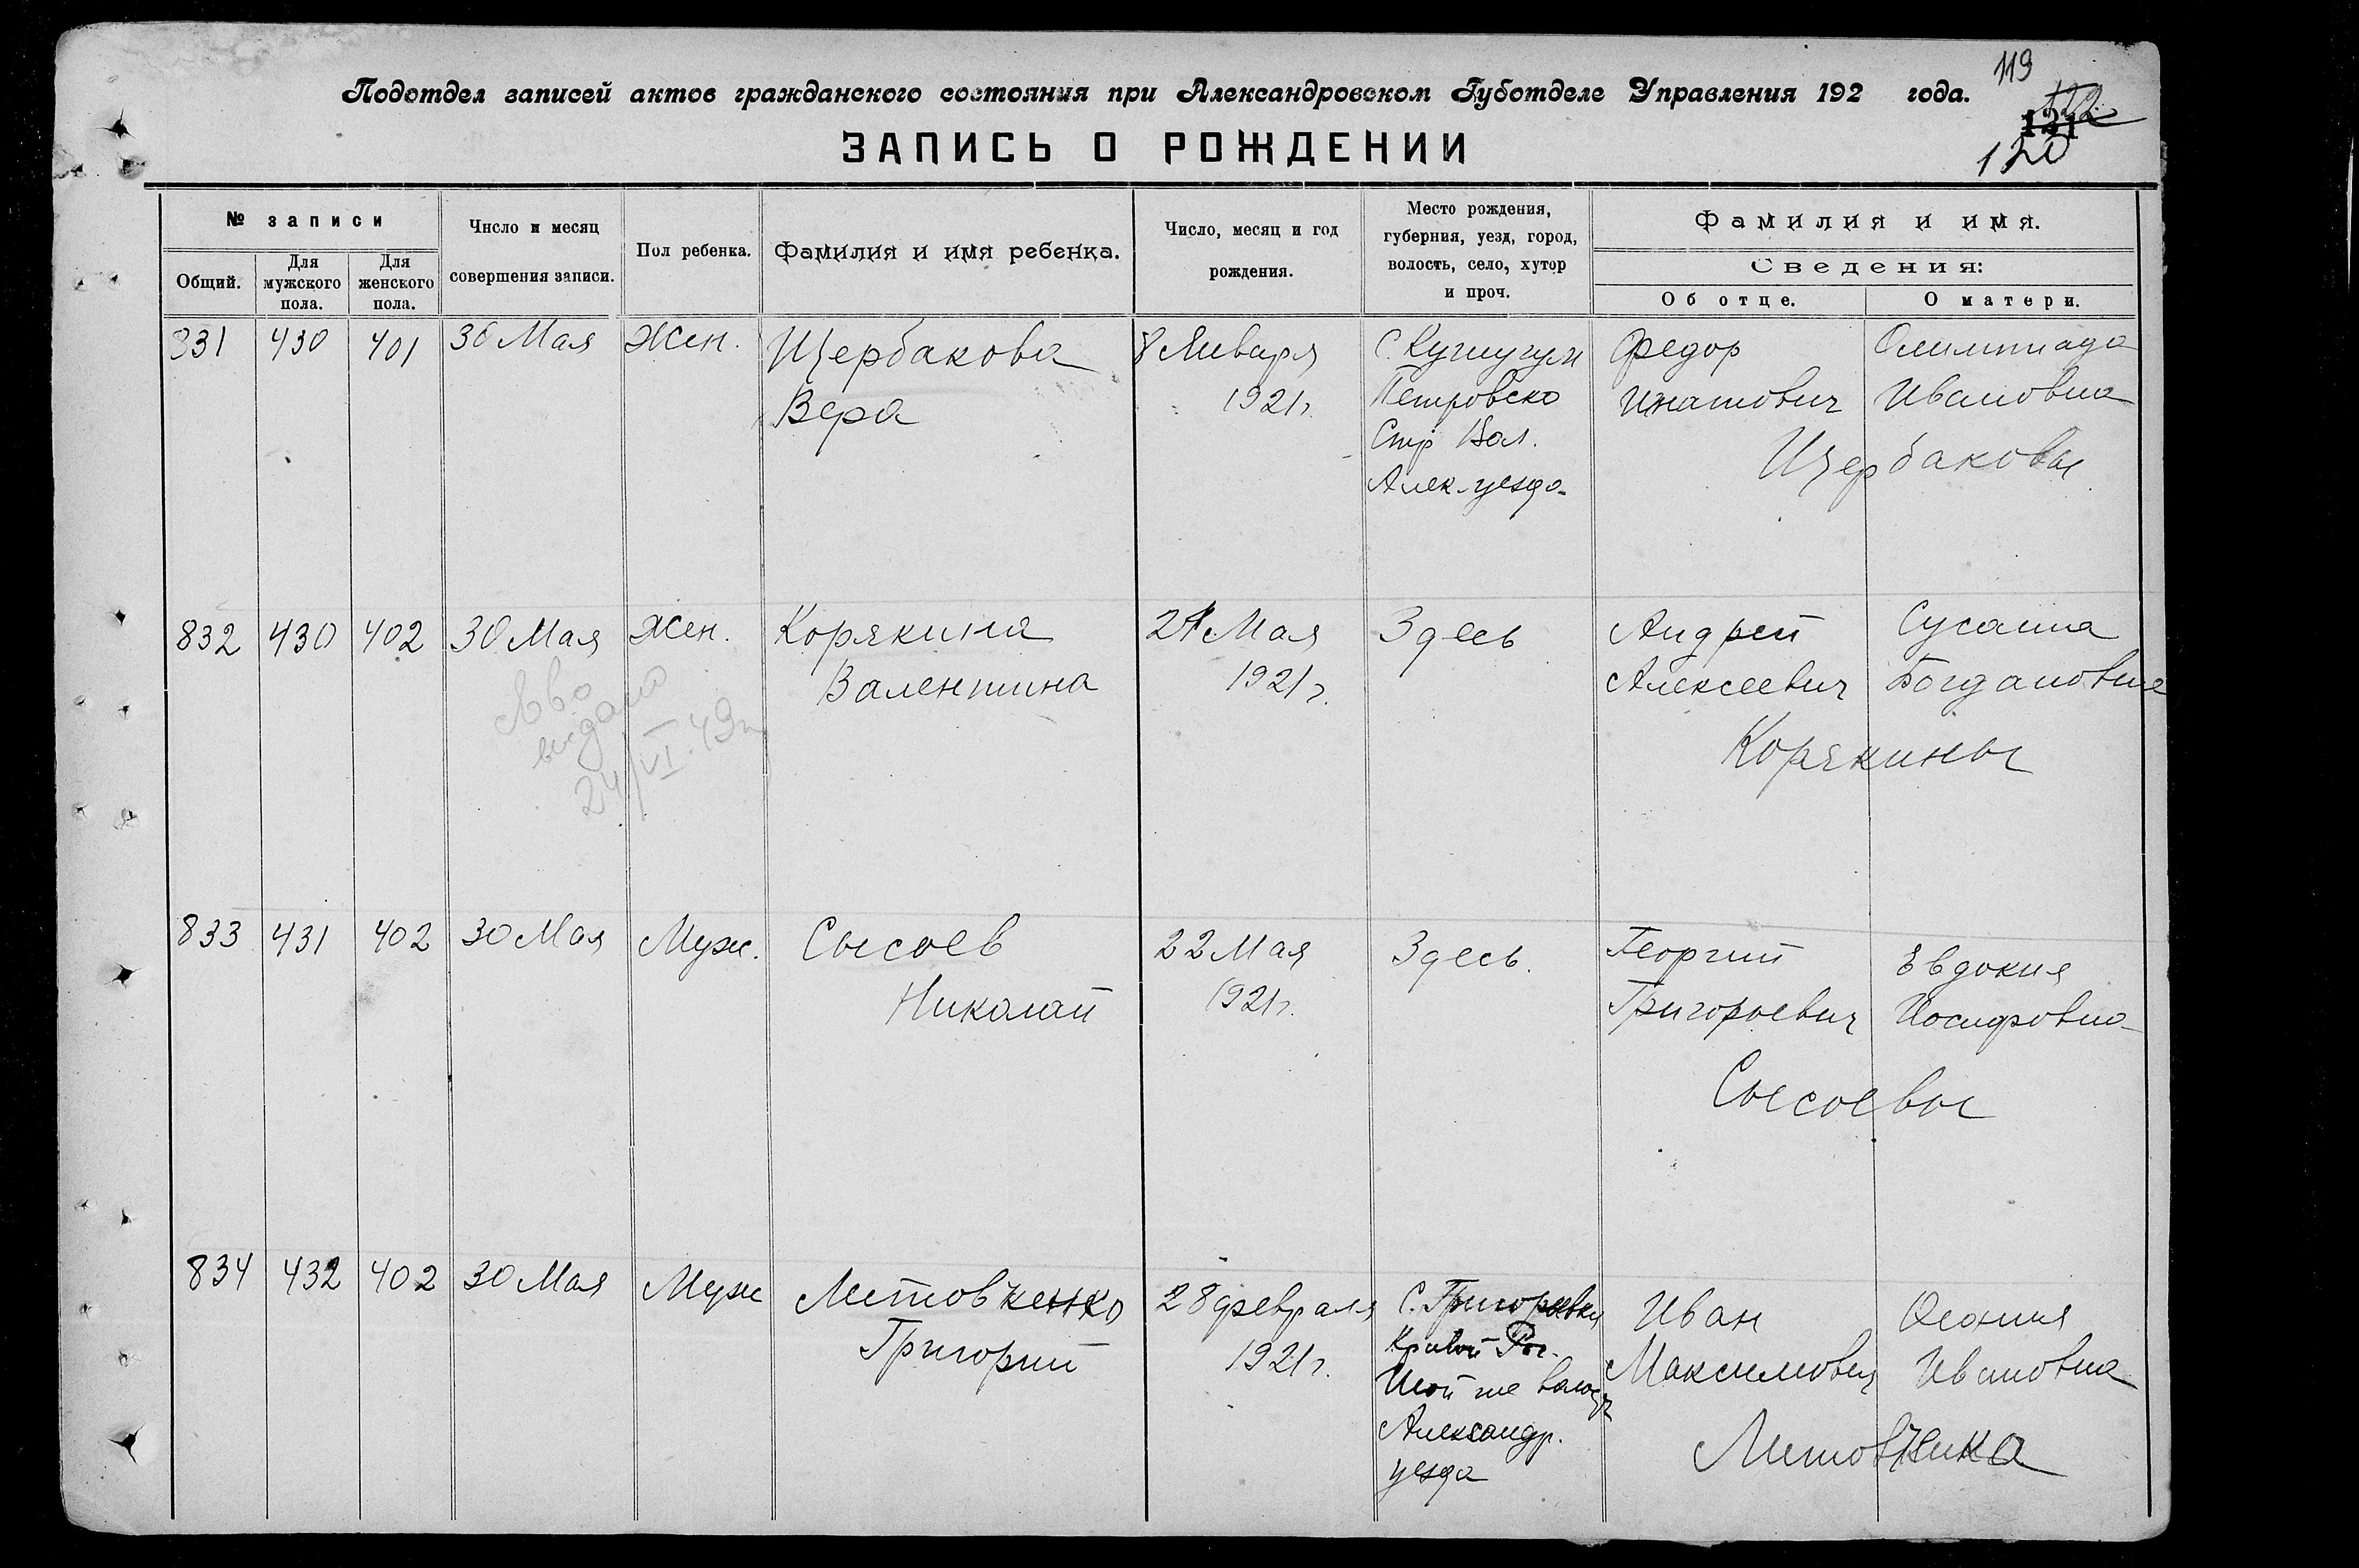 119
Подотдел записей актов гражданского состояния при Александровском Губотделе Управления 192 года.
120
ЗАПИСЬ О РОЖДЕНИИ
№ записи
Общий.
Для мужского пола.
Для женского пола.
Число и месяц совершения записи.
Пол ребенка.
Фамилия и имя ребенка.
Число, месяц и год рождения.
Место рождения, губерния, уезд, город, волость, село, хутор и проч.
Фамилия и имя.
Сведения:
Об отце.
О матери.
831 430 401 30 Мая Жен. Щербакова 8 Января С. Кушугум Федор Олимпиада
Вера 1921г. Петровско Игнатович Ивановна
Стр Вол. Щербаковы
Алек. уезда
832 430 402 30 Мая Жен. Корякина 21 Мая Здесь Андрей Сусанна
Валентина 1921г. Алексеевич Богдановна
выдано
24/VI.49г
Корякины
833 431 402 30 Мая Муж. Сысоев 22 Мая Здесь. Георгий Евдокия
Николай 1921г. Григорьевич Иосифовна
Сысоевы
834 432 402 30 Мая Муж Литовченко 28 февраля С. Григорьевки Иван
Григорий 1921г. Кривой Рог. Максимович Ивановна
той же волос.
Александр. Литовченко
уезда